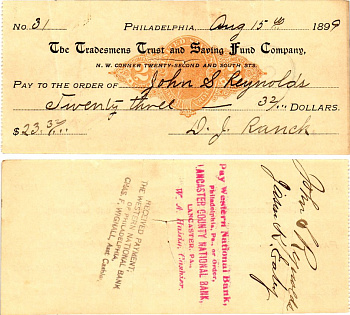 No. 31 Philadelphia, Aug 15th 1899
The Tradesmens Trust and Saving Fund Company,
N. W. CORNER TWENTY-SECOND AND SOUTH STS.
PAY TO THE ORDER OF John S Reynolds
Twenty three 32/.. DOLLARS.
$23.32/.. D. J. Ranck
RECEIVED PAYMENT,
THE WESTERN NATIONAL BANK
OF PHILADELPHIA,
CHAS. F. WIGNALL, Asst. Cashier.
Pay Western National Bank,
Philadelphia, Pa., or Order,
LANCASTER COUNTY NATIONAL BANK,
LANCASTER, PA.,
Cashier.
John S Reynolds